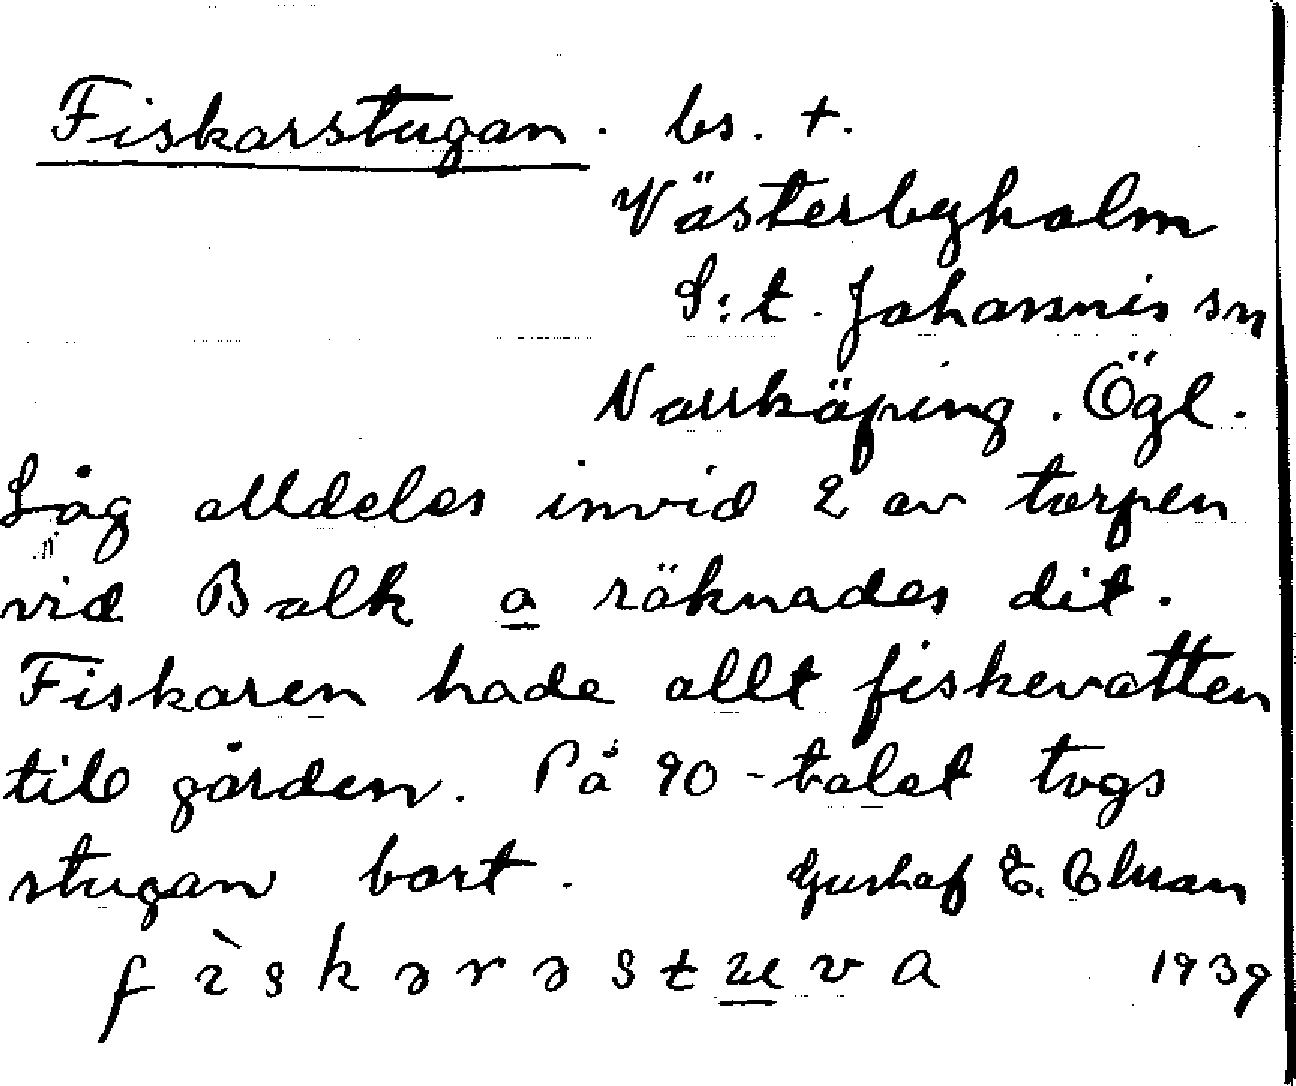 Fiskarstugan. bs. +.
Västerbyholm
S:t. Johannis sn
Norrköping. Ögl.
Låg alldeles invid 2 av torpen
vid Balk a räknades dit.
Fiskaren hade allt fiskevatten
till gården. På 90-talet togs
stugan bort. Gustaf E.
fìskərəstuva 1939